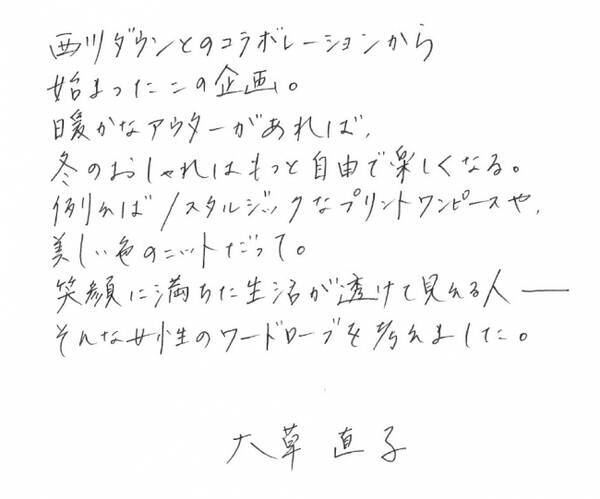 西川ダウンとのコラボレーションから
始まったこの企画。
暖かなアウターがあれば、
冬のおしゃれはもっと自由で楽しくなる。
例えばノスタルジックなプリントワンピースや、
美しい色のニットだって。
笑顔に満ちた生活が透けて見える人――
そんな女性のワードローブを考えました。
大草直子